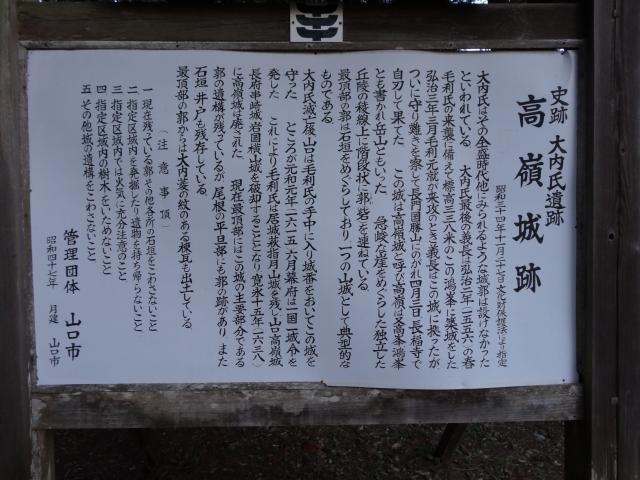 史跡 大内氏遺跡
高嶺城跡
昭和三十四年十一月二十七日文化財保護法により指定
大内氏はその全盛時代他にみられるような城郭は設けなかった
といわれている 大内氏最後の義長は弘治二年(一五五六)の春
毛利氏の来襲に備えて標高三三八米のこの鴻峯に築城をした
弘治三年三月毛利元就が来攻のとき義長はこの城に拠ったが
ついに守り難きを察して長門国勝山にのがれ四月三日長福寺で
自刃して果てた この城は高嶺城と呼び高嶺は又高峯鴻峯
とも書かれ岳山ともいった 急峻な崖をめぐらした独立した
丘陵の稜線上に階段状に郭(砦)を連ねている
最頂部の郭は石垣をめぐらしており一つの山城として典型的な
ものである
大内氏滅亡後山口は毛利氏の手中に入り城番をおいてこの城を
守った ところが元和元年(一六一五)六月幕府は一国一城令を
発した これにより毛利氏は居城萩指月山城を残し山口高嶺城
長府串崎城岩国横山城を破却することとなり寛永十五年(一六三八)
に高嶺城は廃された 現在最頂部にはこの城の主要部分である
郭の遺構が残っているが尾根の平旦部にも郭の跡があり また
石垣 井戸も残存している
最頂部の郭からは大内菱の紋のある棟瓦も出土している
(注意事項)
一 現在残っている郭その他各所の石垣をこわさないこと
二 指定区域内を発掘したり遺物を持ち帰らないこと
三 指定区域内では火気に充分注意のこと
四 指定区域内の樹木をいためないこと
五 その他城の遺構をこわさないこと
管理団体 山口市
昭和四十七年 月建 山口市